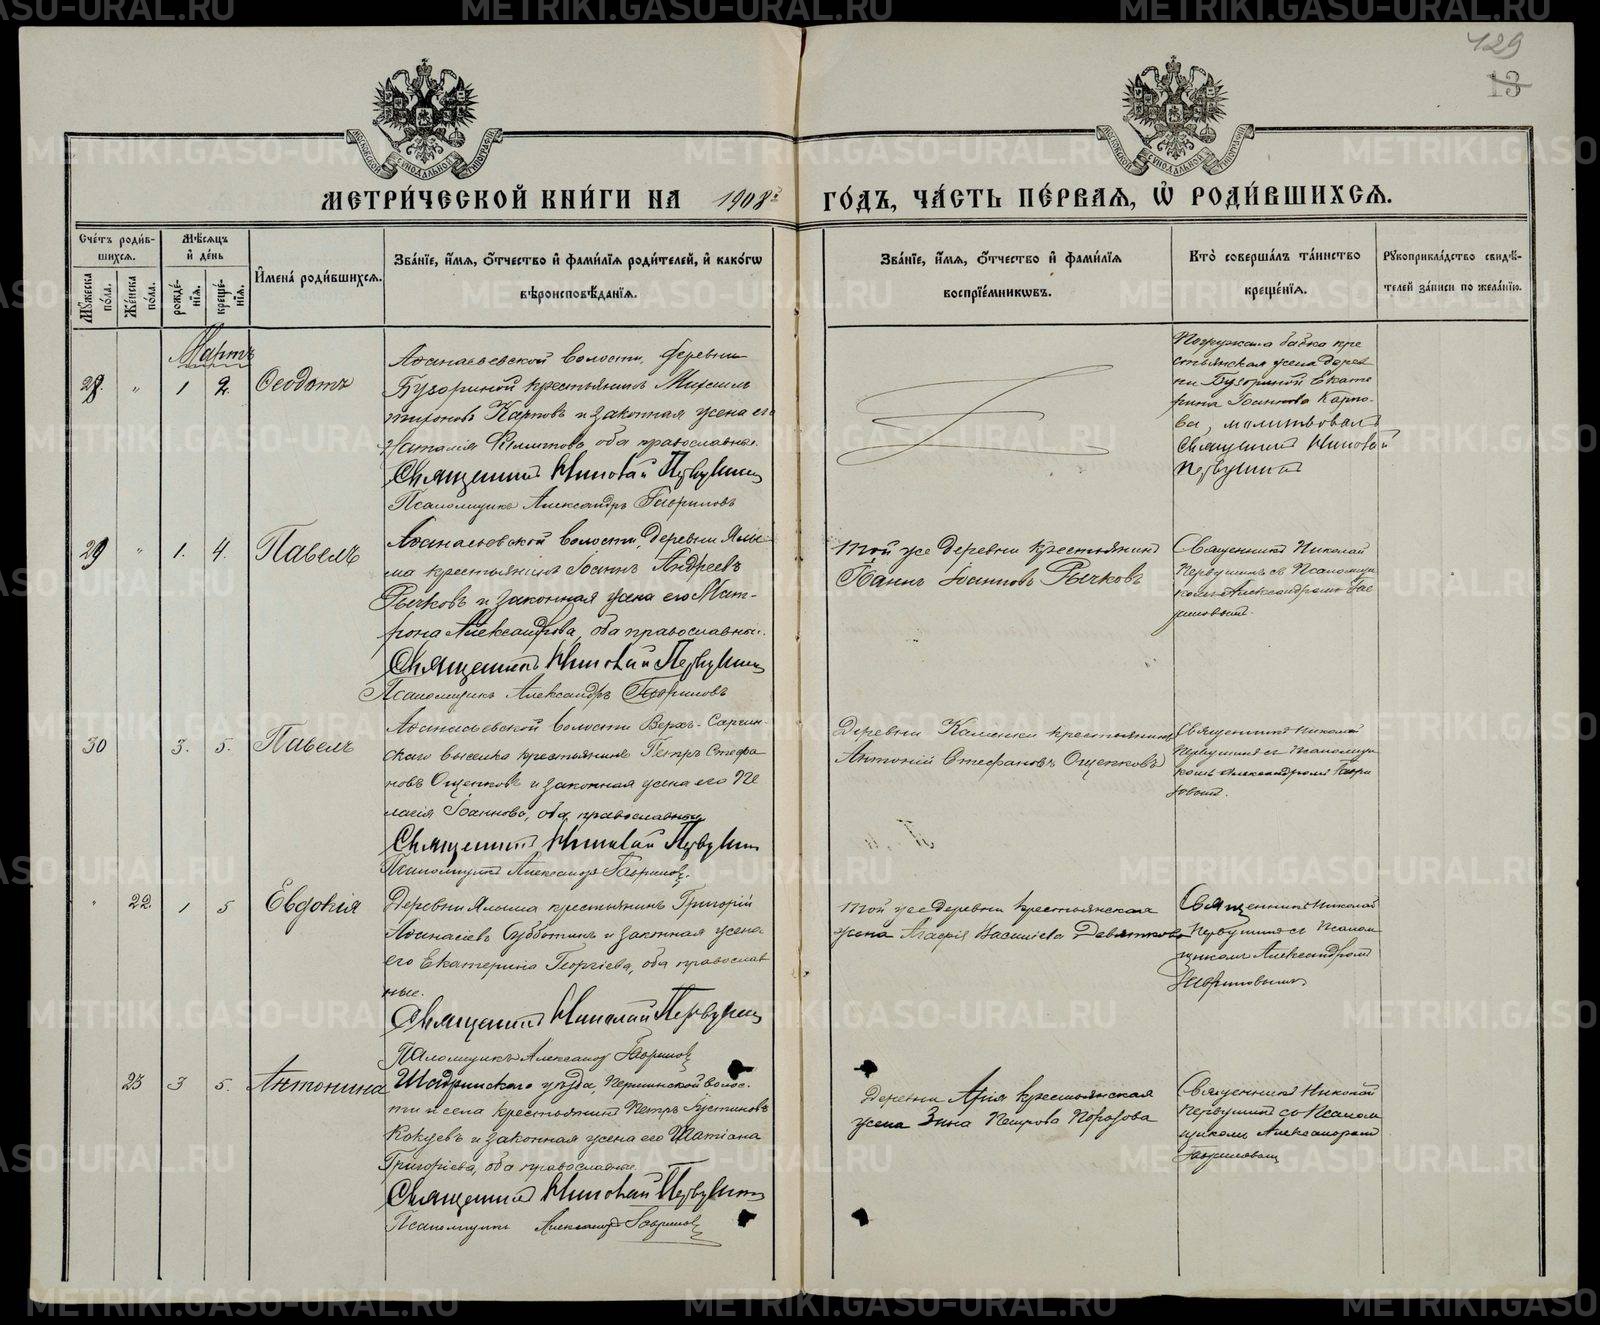 129
13
МОСКОВСКОЙ СѴНОДАЛЬНОЙ ТИПОГРАФІИ
МОСКОВСКОЙ СѴНОДАЛЬНОЙ ТИПОГРАФІИ
МЕТРИ́ЧЕСКОЙ КНИ́ГИ НА 1908й ГО́ДЪ, ЧА́СТЬ ПЕ́РВАѦ, Ѡ҆ РОДИ́ВШИХСѦ.
Сче́тъ роди́в-
шихсѧ.
Мѣ́сѧцъ
и҆ де́нь
Мꙋ́жеска
по́ла.
Же́нска
по́ла.
рожде́-
нїѧ.
креще́-
нїѧ.
И҆мена̀ роди́вшихсѧ.
Зва́нїе, и҆́мѧ, ѻ҆́тчество и҆ фами́лїѧ роди́телей, и҆ како́гѡ
вѣроисповѣ́данїѧ.
Зва́нїе, и҆́мѧ, ѻ҆́тчество и҆ фами́лїѧ
воспрїе́мникѡвъ.
Кто̀ соверша́лъ та́инство
креще́нїѧ.
Рꙋкоприкла́дство свидѣ́-
телей за́писи по жела́нїю.
Мартъ
28. " 1 2. Ѳеодотъ
Аѳанасьевской волости, деревни
Бугориной крестьянинъ Михаилъ
Карповъ и законная жена его
Наталія Филиппова, оба православные.
Священникъ Николай Первушинъ
Псаломщикъ Александръ Гавриловъ
Погружала бабка кре
стьянская жена дерев
ни Бугориной Екате
рина Іоаннова Карпо-
ва, молитвовалъ
Священникъ Николай
Первушинъ
29 " 1. 4. Павелъ
Аѳанасьевской волости, деревни Ялы-
ма крестьянинъ Іоаннъ Андреевъ
Рычковъ и законная жена его Мат-
рона Александрова, оба православные.
Священникъ Николай Первушинъ
Псаломщикъ Александръ Гавриловъ
Той же деревни крестьянинъ
Іоаннъ Іоанновъ Рычковъ
Священникъ Николай
Первушинъ съ Псаломщи
комъ Александромъ Гав
риловымъ.
30 3. 5. Павелъ
Аѳанасьевской волости Верхъ-Саргин-
скаго выселка крестьянинъ Петръ Стефа
новъ Ощепковъ и законная жена его Пе
лагія Іоаннова, оба православные
Священникъ Николай Первушин
Псаломщикъ Александръ Гавриловъ.
Деревни Каменки крестьянинъ
Антоній Стефановъ Ощепковъ
Священникъ Николай
Первушинъ съ Псаломщи
комъ Александромъ Гаври
ловымъ.
" 22 1 5 Евдокія
Деревни Ялыма крестьянинъ Григорій
Аѳанасіевъ Субботинъ и законная жена
его Екатерина Георгіева, оба православ
ные.
Священникъ Николай Первушин
Псаломщикъ Александр Гавриловъ
Той же деревни крестьянская
жена Агафія Василіева Девяткова
Священникъ Николай
Первушинъ съ Псалом
щикомъ Александромъ
Гавриловымъ
23 3 5. Антонина
Шадринскаго уѣзда, Першинской волос-
ти и села крестьянинъ Петръ Іустиновъ
Кокуевъ и законная жена его Татіана
Григоріева, оба православные.
Священникъ Николай Первушинъ
Псаломщикъ Александръ Гавриловъ
Деревни крестьянская
жена Петрова
Священникъ Николай
Первушинъ съ Псалом
щикомъ Александромъ
Гавриловым
METRIKI.GASO-URAL.RU